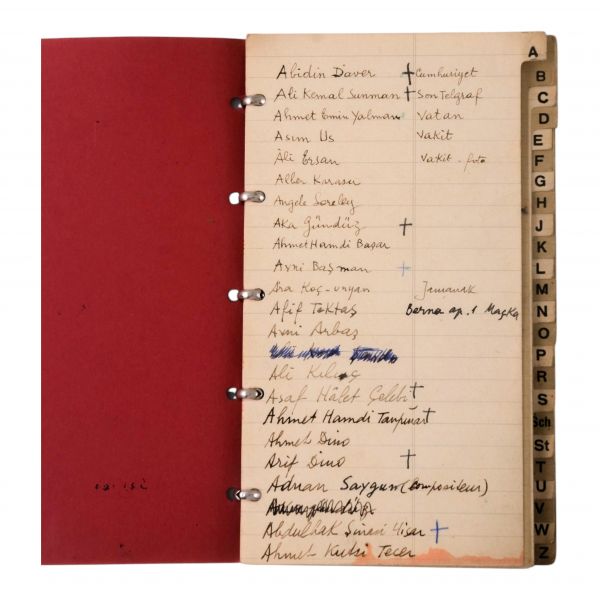 Abidin Daver † Cumhuriyet
Ali Kemal Sunman † Son Telgraf
Ahmet Emin Yalman Vatan
Asım Us Vakit
Âli Ersan Vakit - foto
Alber Karasu
Angele Loreley
Aka Gündüz †
Ahmet Hamdi Başar
Avni Başman +
Ara Koç-unyan Jamanak
Afif Tektaş Berna ap. 1 Maçka
Avni Arbaş
Ali Kılıç
Asaf Hâlet Çelebi †
Ahmet Hamdi Tanpınar †
Ahmet Dino
Arif Dino †
Adnan Saygun (compositeur)
Abdulhak Şinasi Hisar †
Ahmet Kutsi Tecer
A
B
C
D
E
F
G
H
J
K
L
M
N
O
P
R
S
Sch
St
T
U
V
W
Z